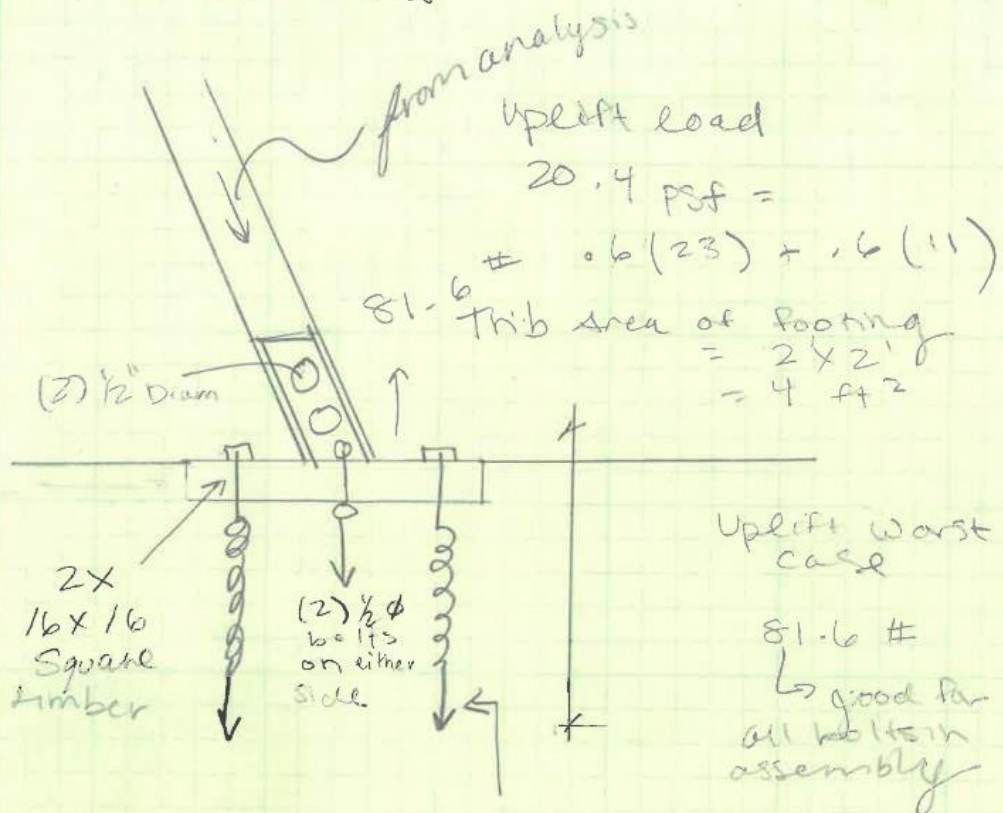 from analysis
Uplift load
20.4 psf =
.6(23) + .6(11)
81.6 #
Trib area of footing
= 2'x2'
= 4 ft²
(2) 1/2" Diam
2X
16X16
Square
timber
(2) 1/2 ϕ
bolts
on either
side
Uplift worst
case
81.6 #
↳ good for
all bolts in
assembly